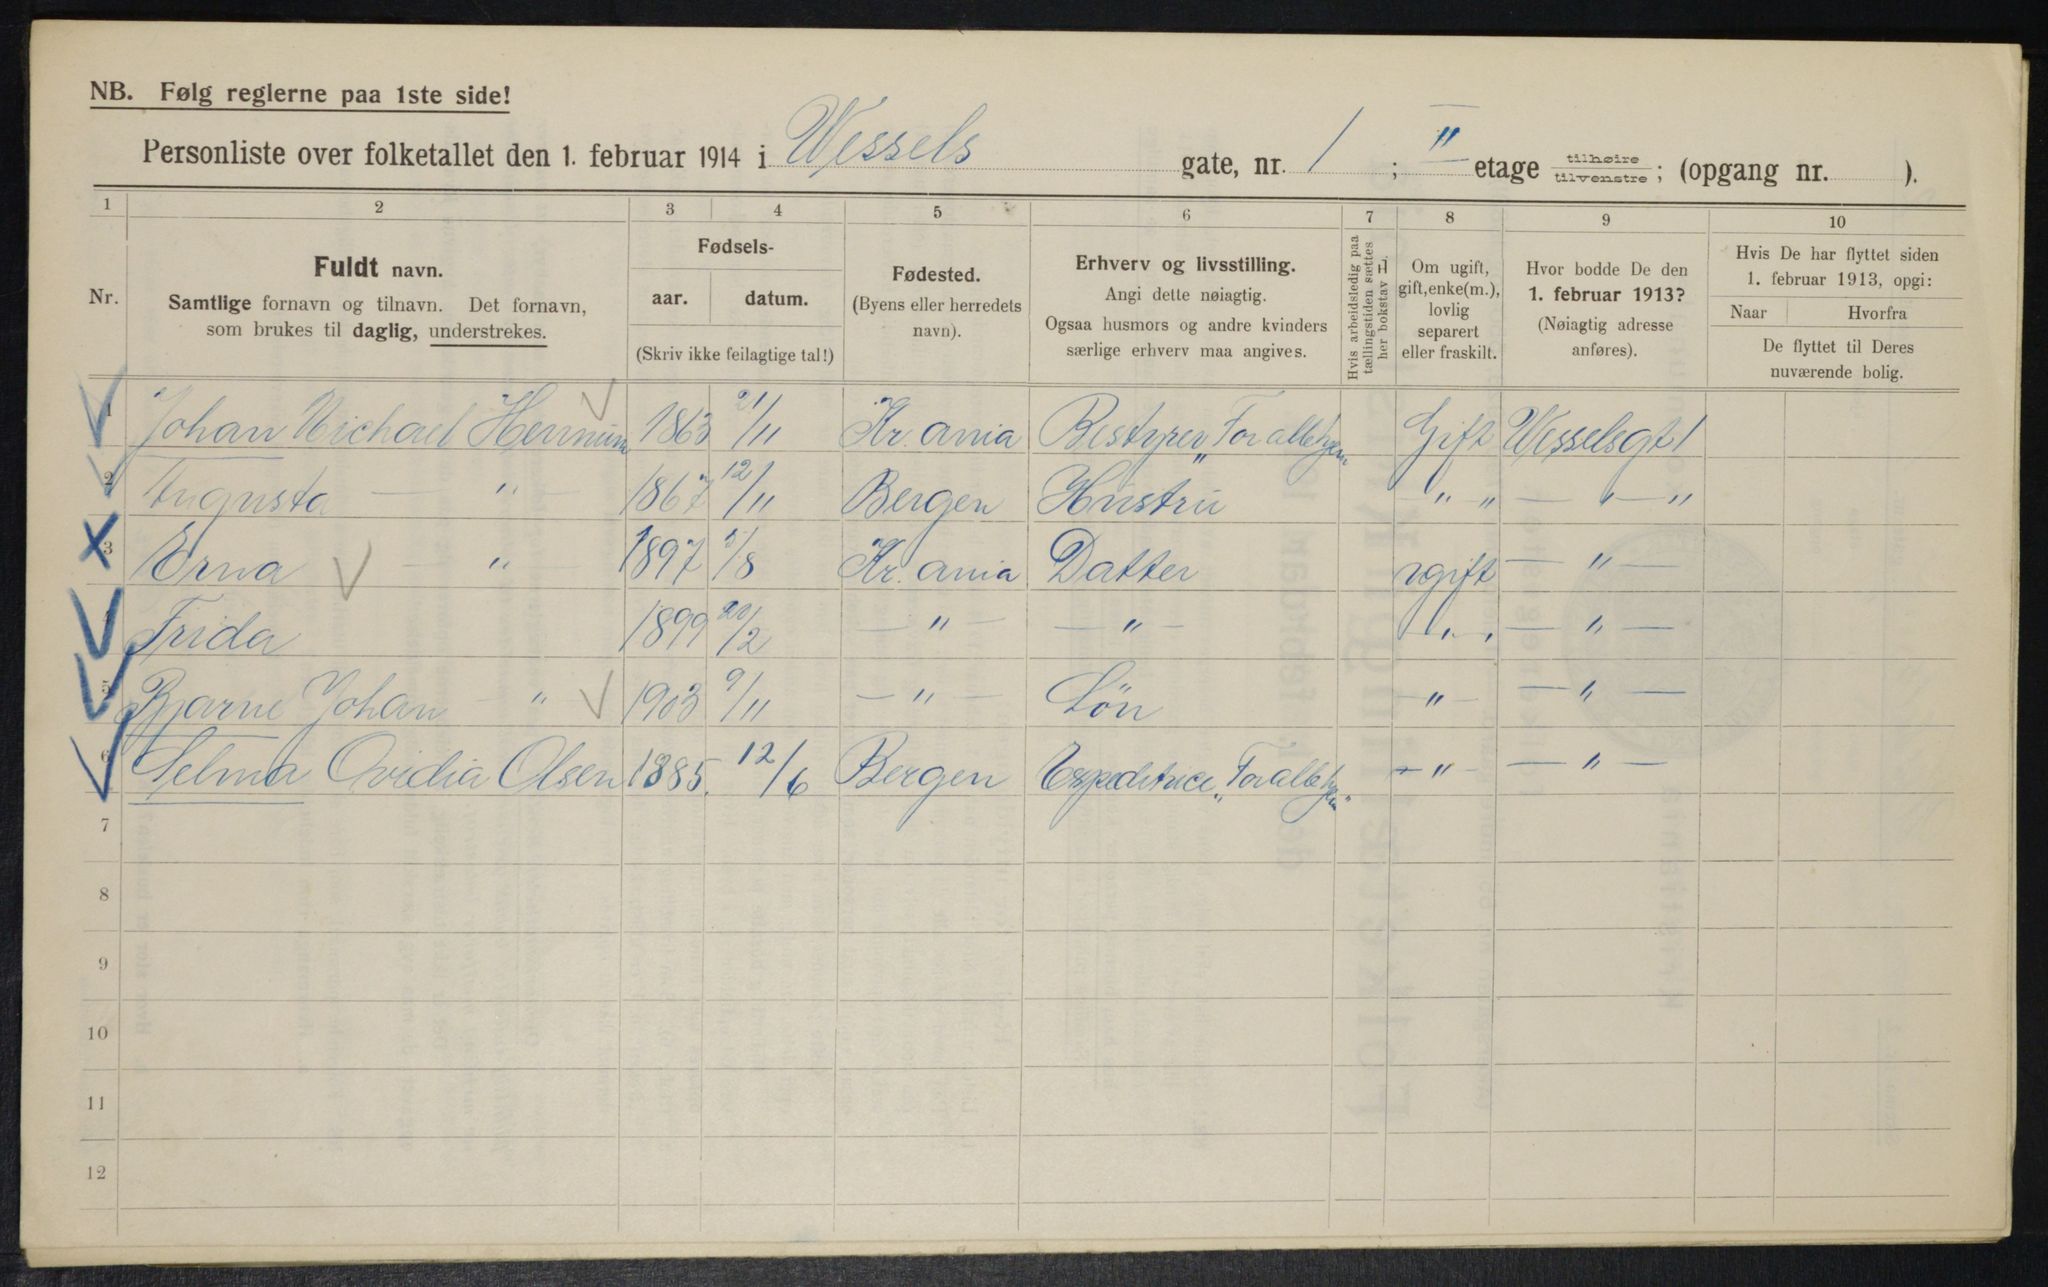 NB. Følg reglerne paa 1ste side!
Personliste over folketallet den 1. februar 1914 i Wessels gate, nr. 1 ; II etage tilhøire tilvenstre ; (opgang nr. ).
1 2 3 4 5 6 7 8 9 10
Nr.
Fuldt navn.
Samtlige fornavn og tilnavn. Det fornavn,
som brukes til daglig, understrekes.
Fødsels-
aar. datum.
(Skriv ikke feilagtige tal!)
Fødested.
(Byens eller herredets
navn).
Erhverv og livsstilling.
Angi dette nøiagtig.
Ogsaa husmors og andre kvinders
særlige erhverv maa angives.
Hvis arbeidsledig paa
tællingstiden sættes
her bokstav L.
Om ugift,
gift, enke(m.),
lovlig
separert
eller fraskilt.
Hvor bodde De den
1. februar 1913?
(Nøiagtig adresse
anføres).
Hvis De har flyttet siden
1. februar 1913, opgi:
Naar Hvorfra
De flyttet til Deres
nuværende bolig.
1 Johan Michael Hennum 1863 21/11 Kr.ania Bestyrer "Foralkhjem Gift Wesselsgt 1
2 Augusta — " — 1867 12/11 Bergen Hustru — " " — " — "
3 Erna — " — 1897 /8 Kr.ania Datter ugift — " —
4 Frida 1899 /2 — " — — " — — " — — " —
5 Bjarne Johan — " 1903 9/11 — " — Sön — " — — " —
6 Selma Ovidia Olsen 1885. 12/6 Bergen Expeditrice — " — — " —
7
8
9
10
11
12